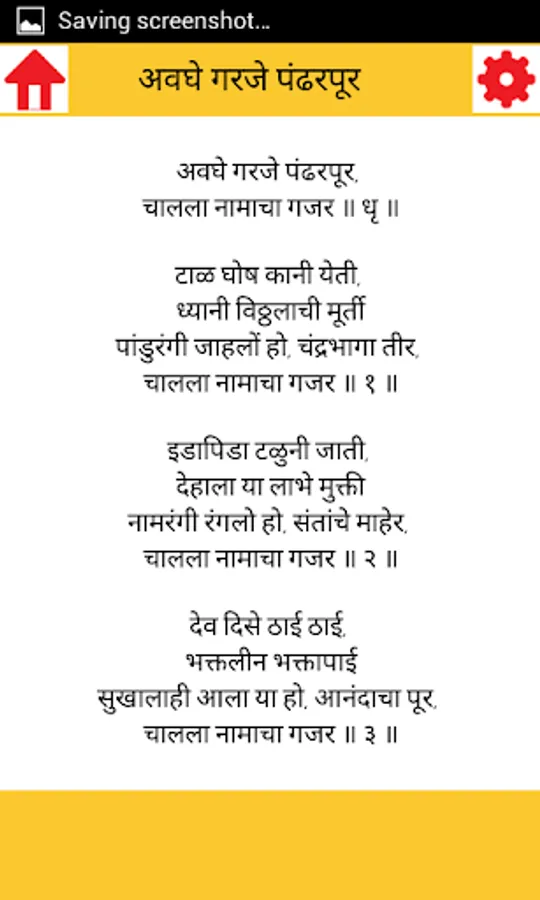 Saving screenshot...
अवघे गरजे पंढरपूर
अवघे गरजे पंढरपूर,
चालला नामाचा गजर ॥ धृ ॥
टाळ घोष कानी येती,
ध्यानी विठ्ठलाची मूर्ती
पांडुरंगी जाहलों हो, चंद्रभागा तीर,
चालला नामाचा गजर ॥ १ ॥
इडापिडा टळुनी जाती,
देहाला या लाभे मुक्ती
नामरंगी रंगलो हो, संतांचे माहेर,
चालला नामाचा गजर ॥ २ ॥
देव दिसे ठाई ठाई,
भक्तलीन भक्तापाई
सुखालाही आला या हो, आनंदाचा पूर,
चालला नामाचा गजर ॥ ३ ॥